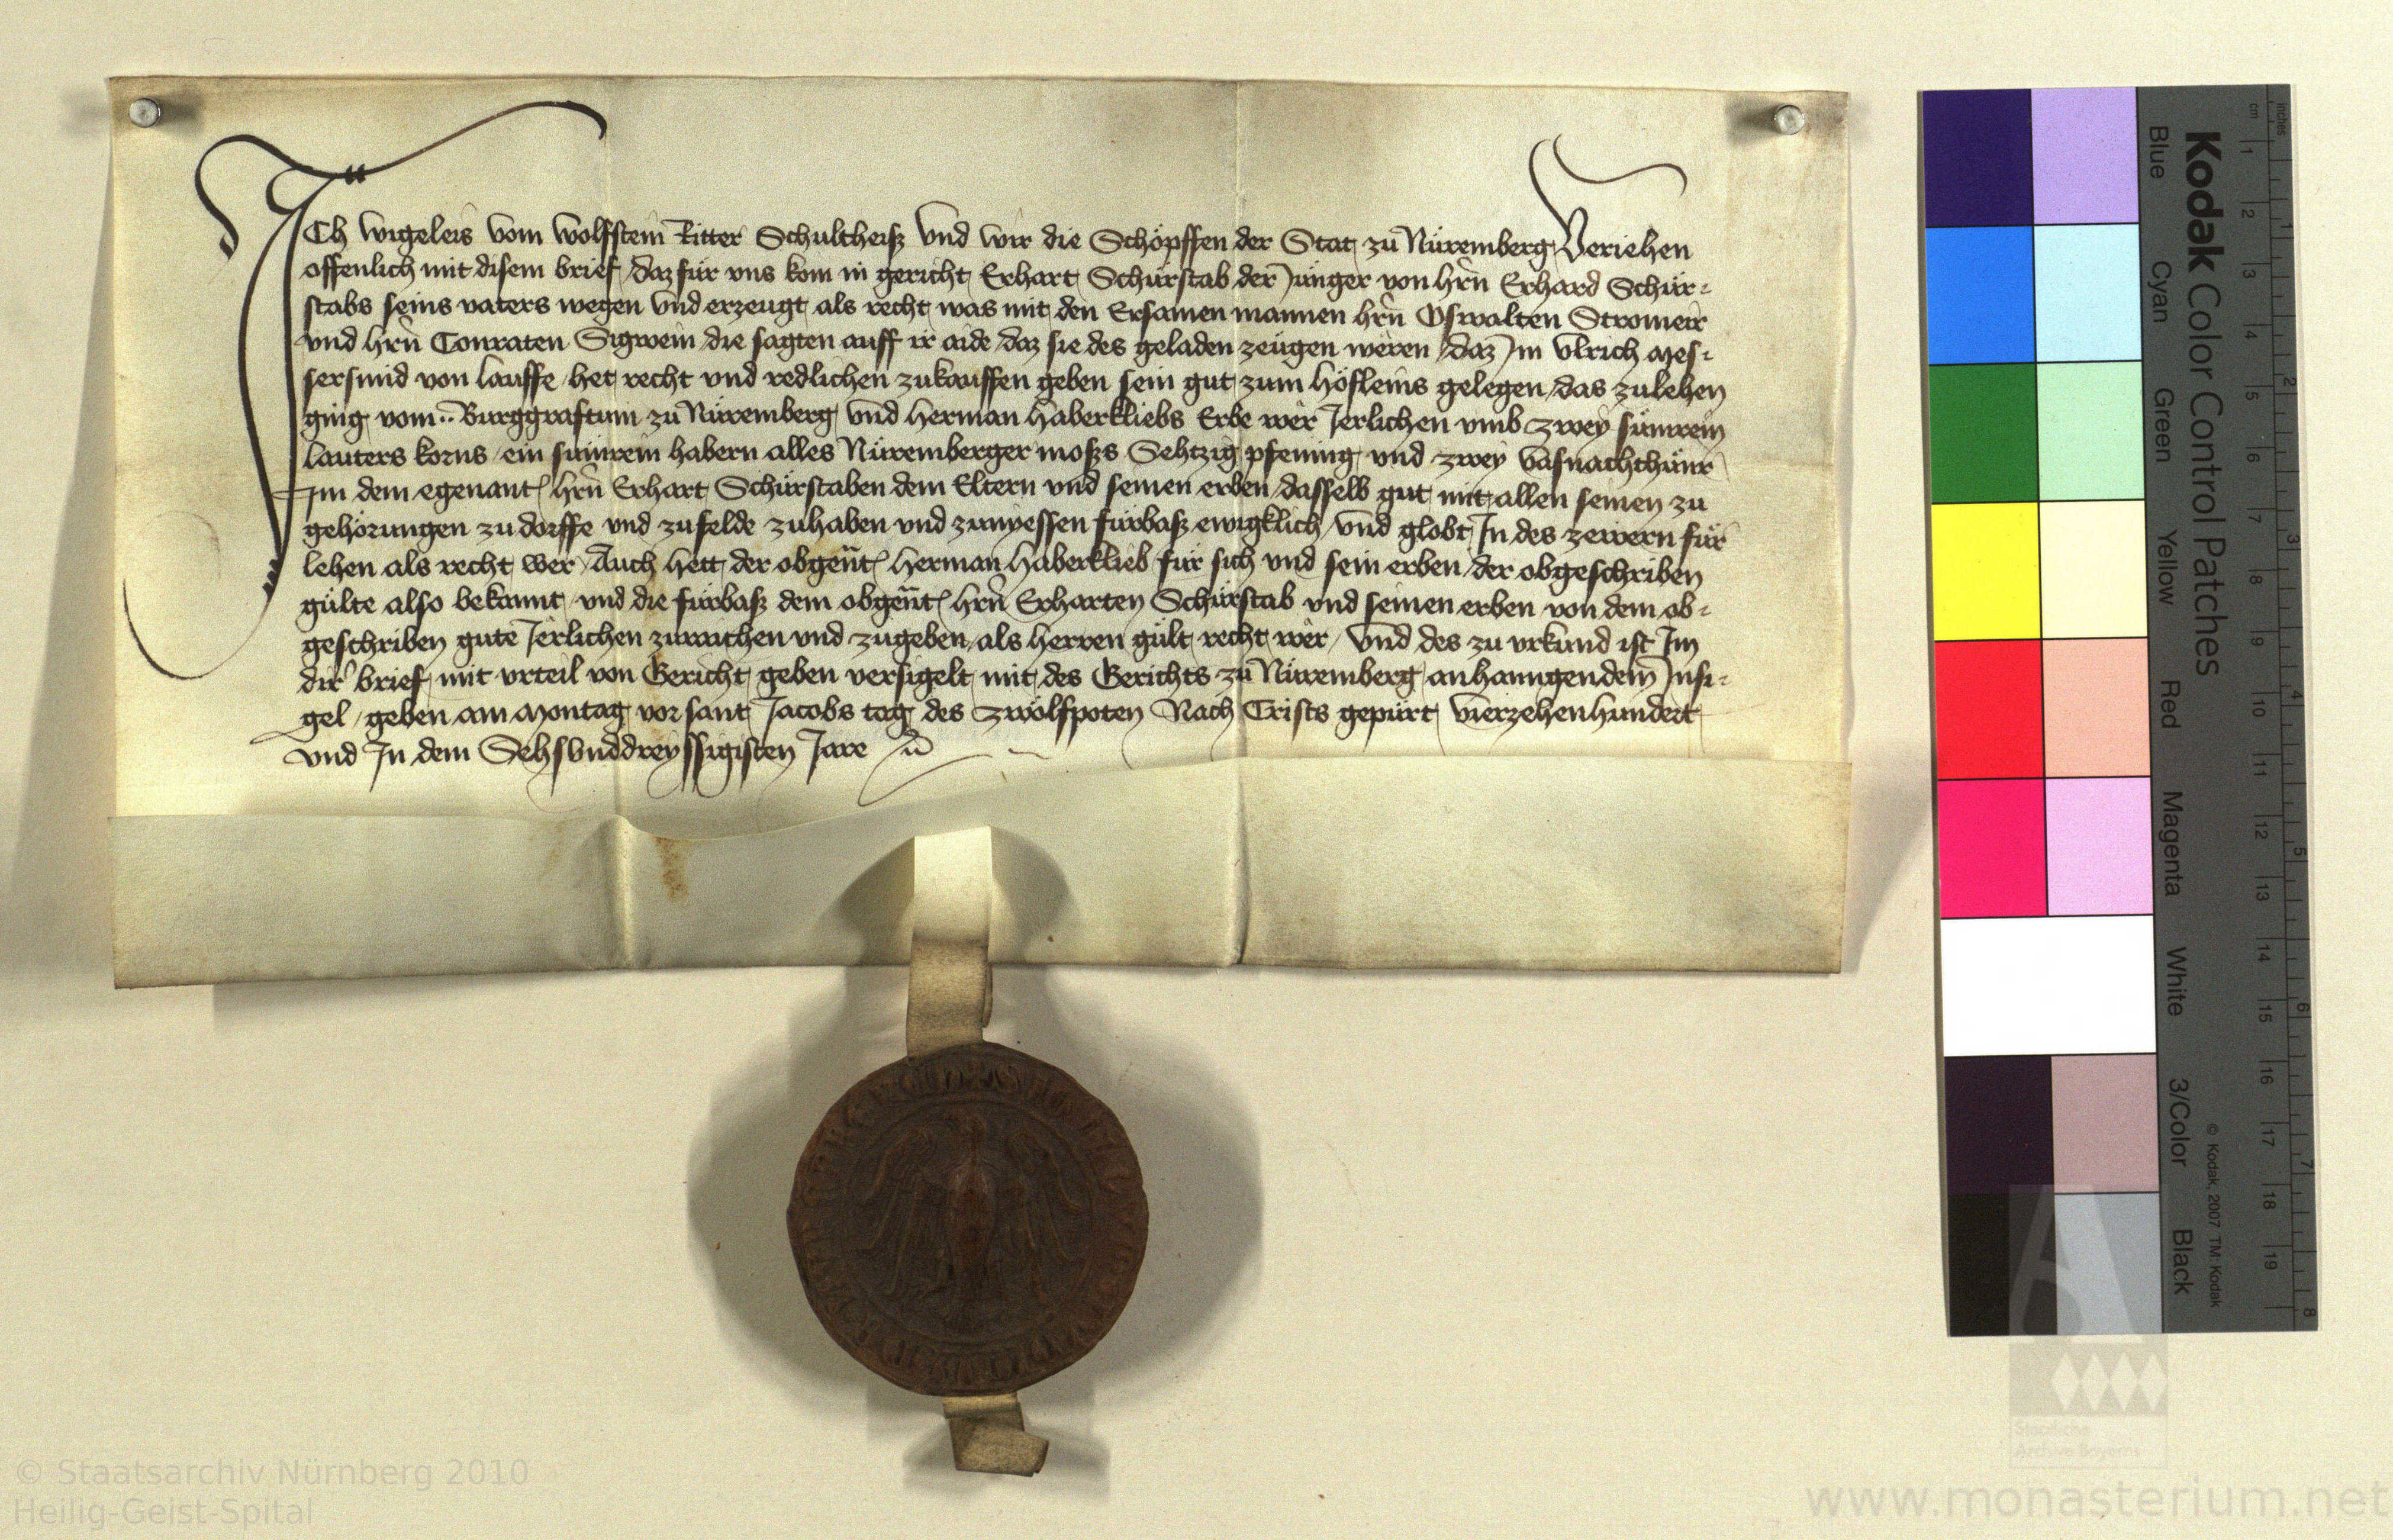 ICh wigeleis vom wolfstein Ritter Schultheisz vnd wir die Schöpffen der Stat zu Nüremberg Veriehen
offenlich mit disem brief / daz für vns kom in gericht Erhart Schürstab der Jünger von hrn̄ Erhard Schür=
stabs seins vaters wegen vnd erzeugt als recht was mit den Ersamen mannen hrn̄ Oswalten Stromeir
vnd hrn̄ Conraten Sigwein / die sagten auff ir aide / daz sie des geladen zeügen weren / daz Im Vlrich Mes=
sersmid von lauffe / het recht vnd redlichen zukauffen geben sein gut zum höfleins gelegen / das zulehen
ging vom ·· Burggraftum zu Nüremberg vnd herman haberkliebs Erbe wer Jerlichen vmb zwey sümrein
lauters korns / ein sümrein habern alles Nüremberger moszs Sehtzig pfening vnd zwey vasnachthünr
Im dem egenant hrn̄ Erhart Schürstaben dem Eltern vnd seinen erben / dasselb gut mit allen seinen zu
gehörungen zu dorffe vnd zufelde zuhaben vnd zunyessen fürbasz ewigklich / vnd globt In des zewern für
lehen als recht wer / Auch hett der obgen̄t herman haberklieb für sich vnd sein erben / der obgeschriben
gülte also bekannt / vnd die fürbasz dem obgen̄t hrn̄ Erharten Schürstab vnd seinen erben von dem ob=
geschriben gute Jerlichen zuraichen vnd zugeben / als herren gült recht wer / vnd des zu vrkund ist Im
dir brief mit vrteil von Gericht geben versigelt mit des Gerichts zu Nüremberg anhanngendem Insi=
gel / geben am Montag vor sant Jacobs tag des zwölfpoten Nach Crists gepürt vierzehenhundert
vnd In dem Sehsvnddreyssigisten Jare
Kodak Color Control Patches
Blue Cyan Green Yellow Red Magenta White 3/Color Black
© Kodak, 2007 TM: Kodak
cm 1 2 3 4 5 6 7 8 9 10 11 12 13 14 15 16 17 18 19
inches 1 2 3 4 5 6 7 8
Staatliche
Archive Bayerns
© Staatsarchiv Nürnberg 2010
Heilig-Geist-Spital
www.monasterium.net